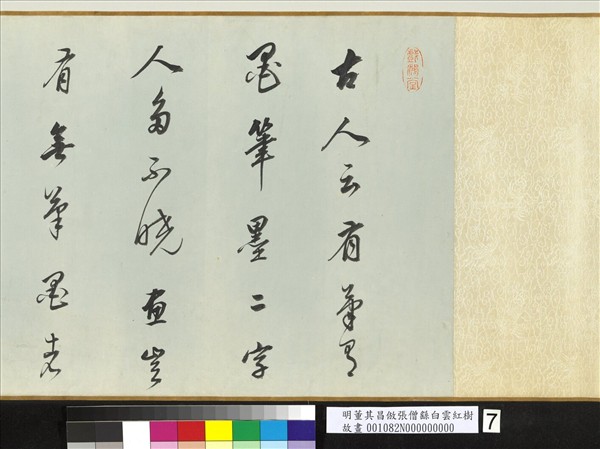 古人云有筆有
墨筆墨二字
人多不曉画豈
有無筆墨者
明董其昌倣張僧繇白雲紅樹
故畫 001082N000000000
7